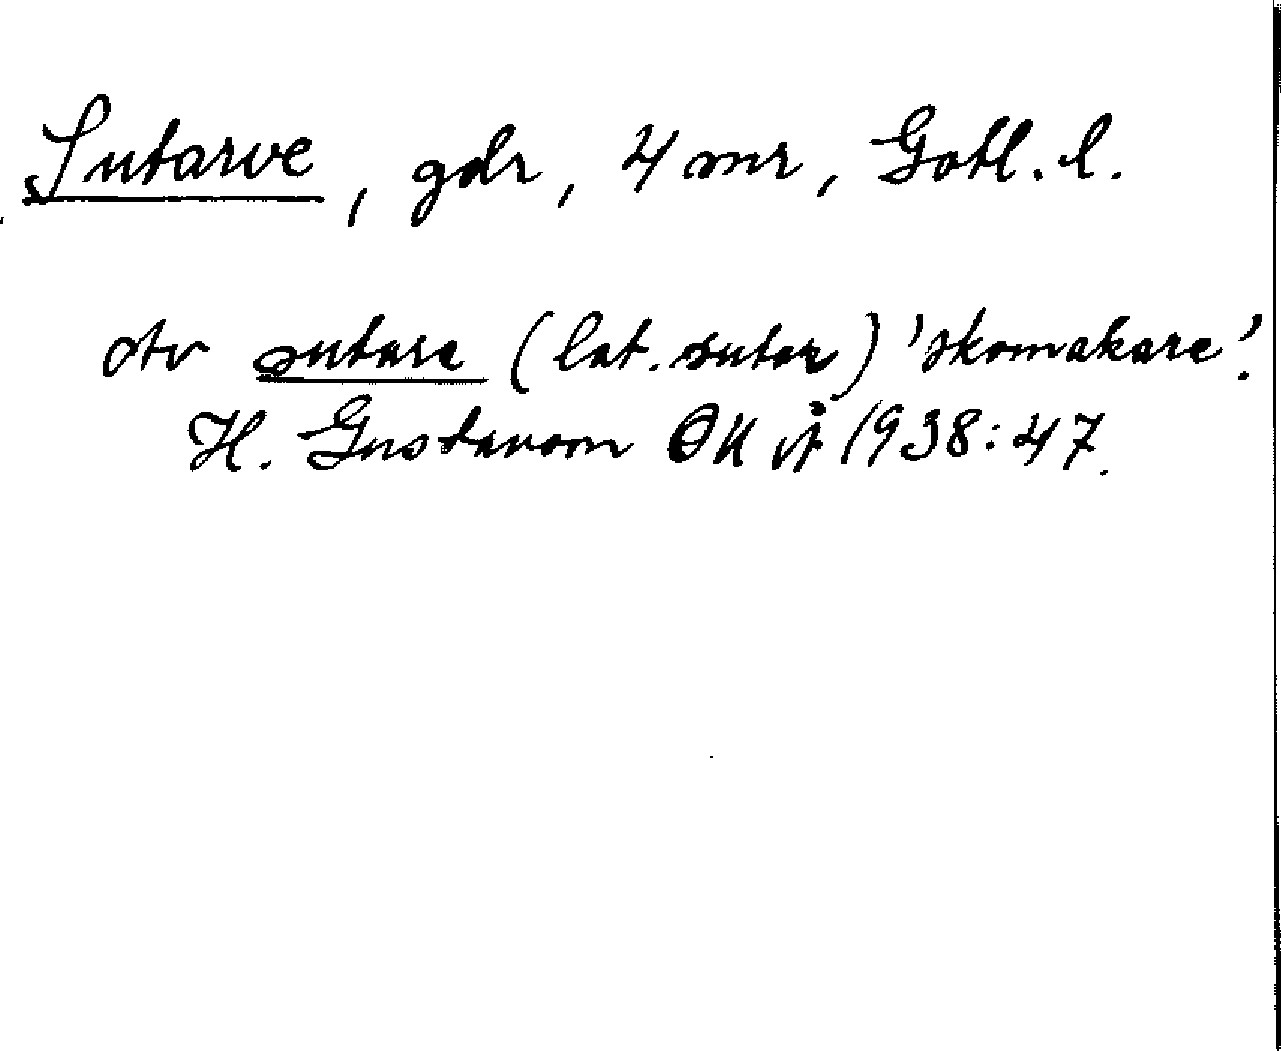 Sutarve, gdr, 4 snr, Gotl. l.
Av sutare (lat. sutor) 'skomakare'.
H. Gustavson 1938:47.